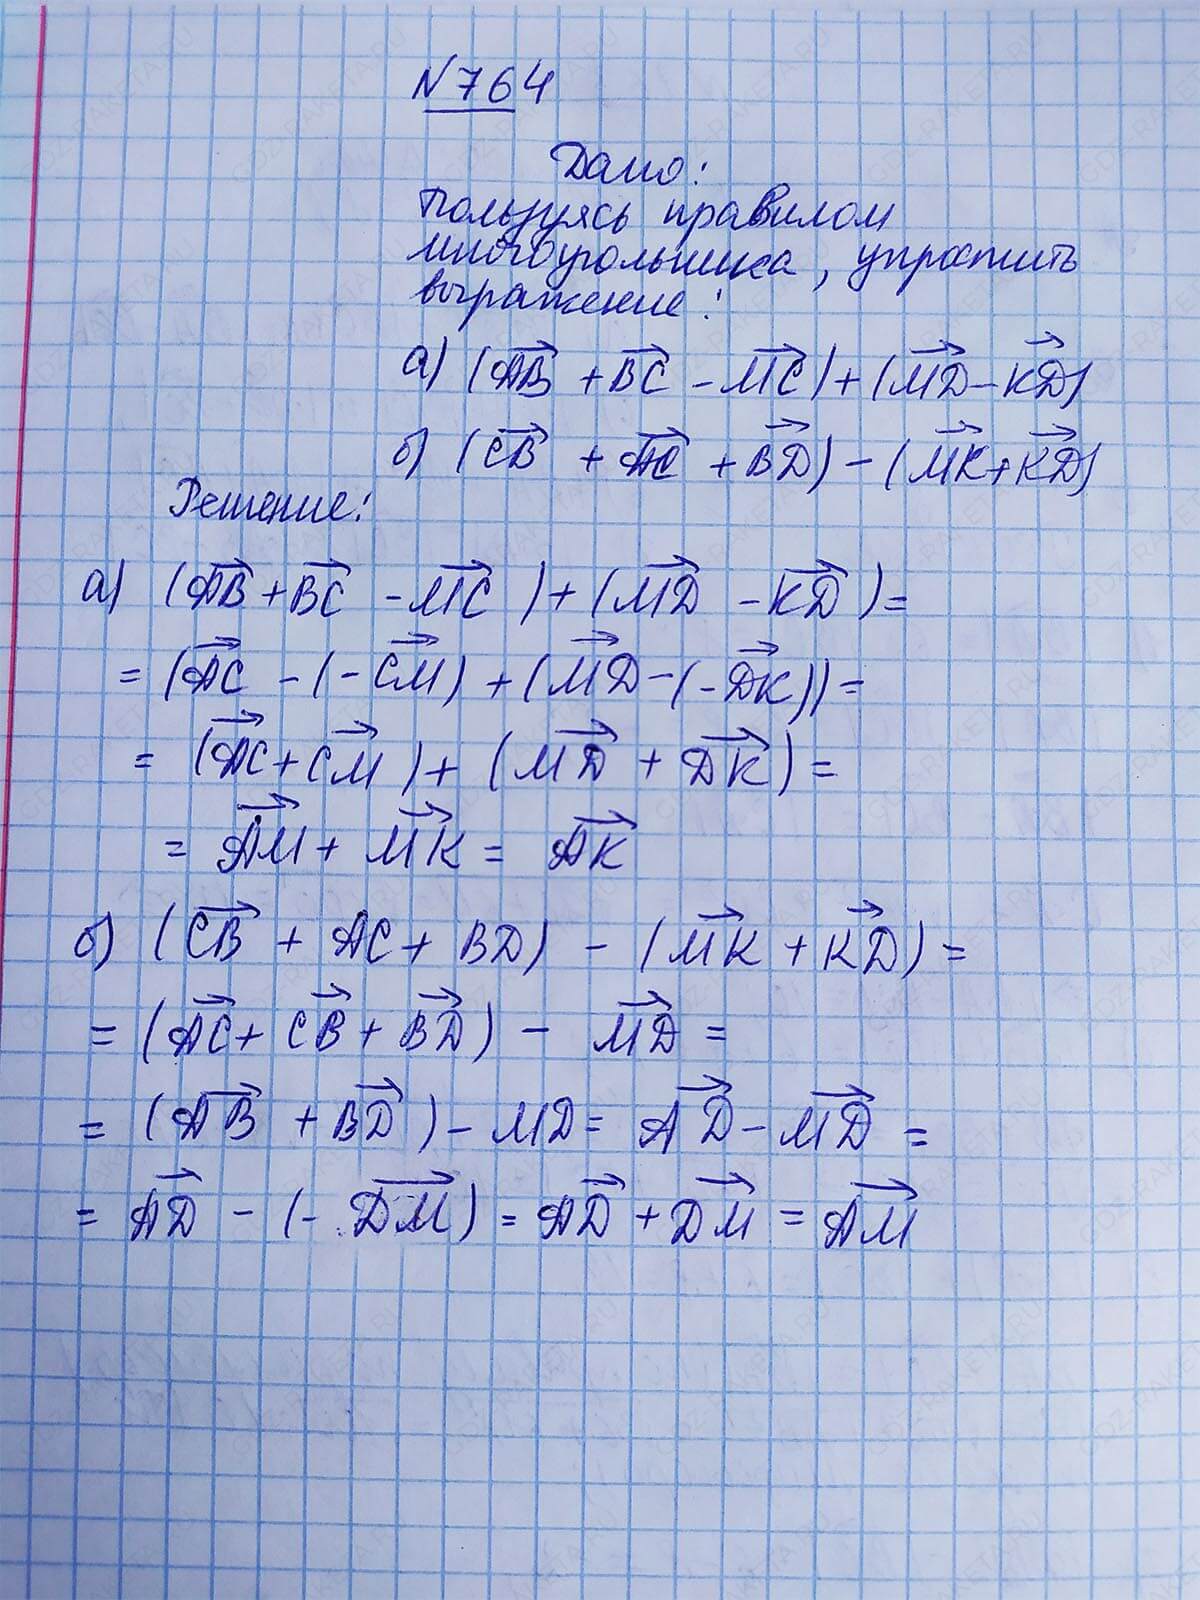 N764
Дано:
Пользуясь правилом
многоугольника, упростить
выражение:
а) (AB + BC - MC) + (MD - KD)
б) (CB + AC + BD) - (MK + KD)
Решение:
а) (AB + BC - MC) + (MD - KD) =
= (AC - (-CM) + (MD - (-DK)) =
= (AC + CM) + (MD + DK) =
= AM + MK = AK
б) (CB + AC + BD) - (MK + KD) =
= (AC + CB + BD) - MD =
= (AB + BD) - MD = AD - MD =
= AD - (- DM) = AD + DM = AM